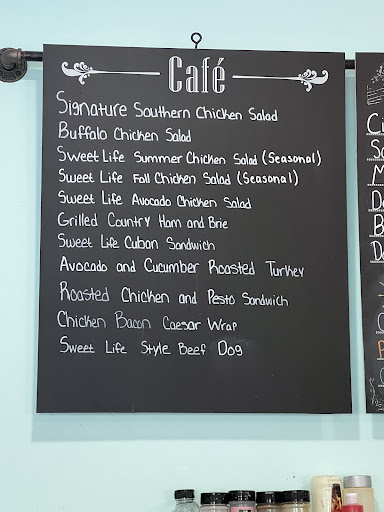 Café
Signature Southern Chicken Salad
Buffalo Chicken Salad
Sweet Life Summer Chicken Salad (Seasonal)
Sweet Life Fall Chicken Salad (Seasonal)
Sweet Life Avocado Chicken Salad
Grilled Country Ham and Brie
Sweet Life Cuban Sandwich
Avocado and Cucumber Roasted Turkey
Roasted Chicken and Pesto Sandwich
Chicken Bacon Caesar Wrap
Sweet Life Style Beef Dog